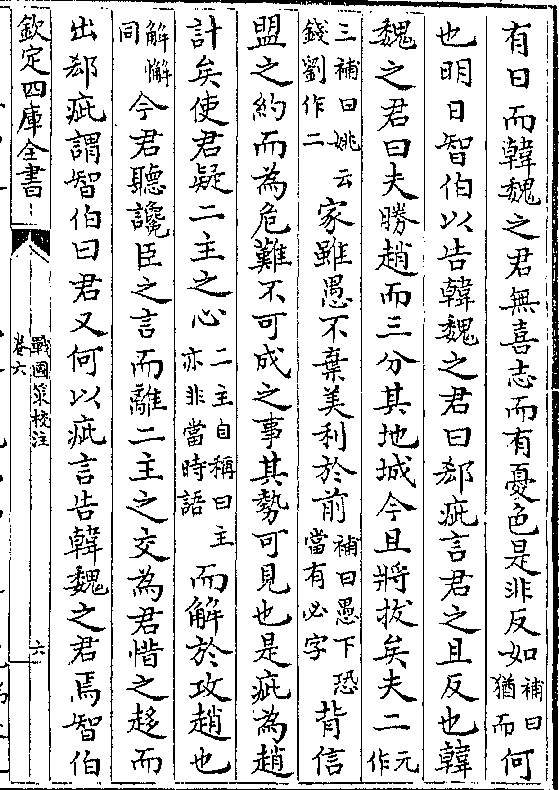 有日而韓魏之君無喜志而有憂色是非反如補曰猶而何
也明日智伯以告韓魏之君曰郄疵言君之且反也韓
魏之君曰夫勝趙而三分其地城今且將拔矣夫二元作
三補曰姚云錢劉作二家雖愚不棄美利於前補曰愚下恐當有必字背信
盟之約而為危難不可成之事其勢可見也是疵為趙
計矣使君疑二主之心二主自稱曰主亦非當時語而解於攻趙也
解懈同今君聽讒臣之言而離二主之交為君惜之趍而
出郄疵謂智伯曰君又何以疵言告韓魏之君焉智伯
欽定四庫全書
戰國策校注
卷六
六